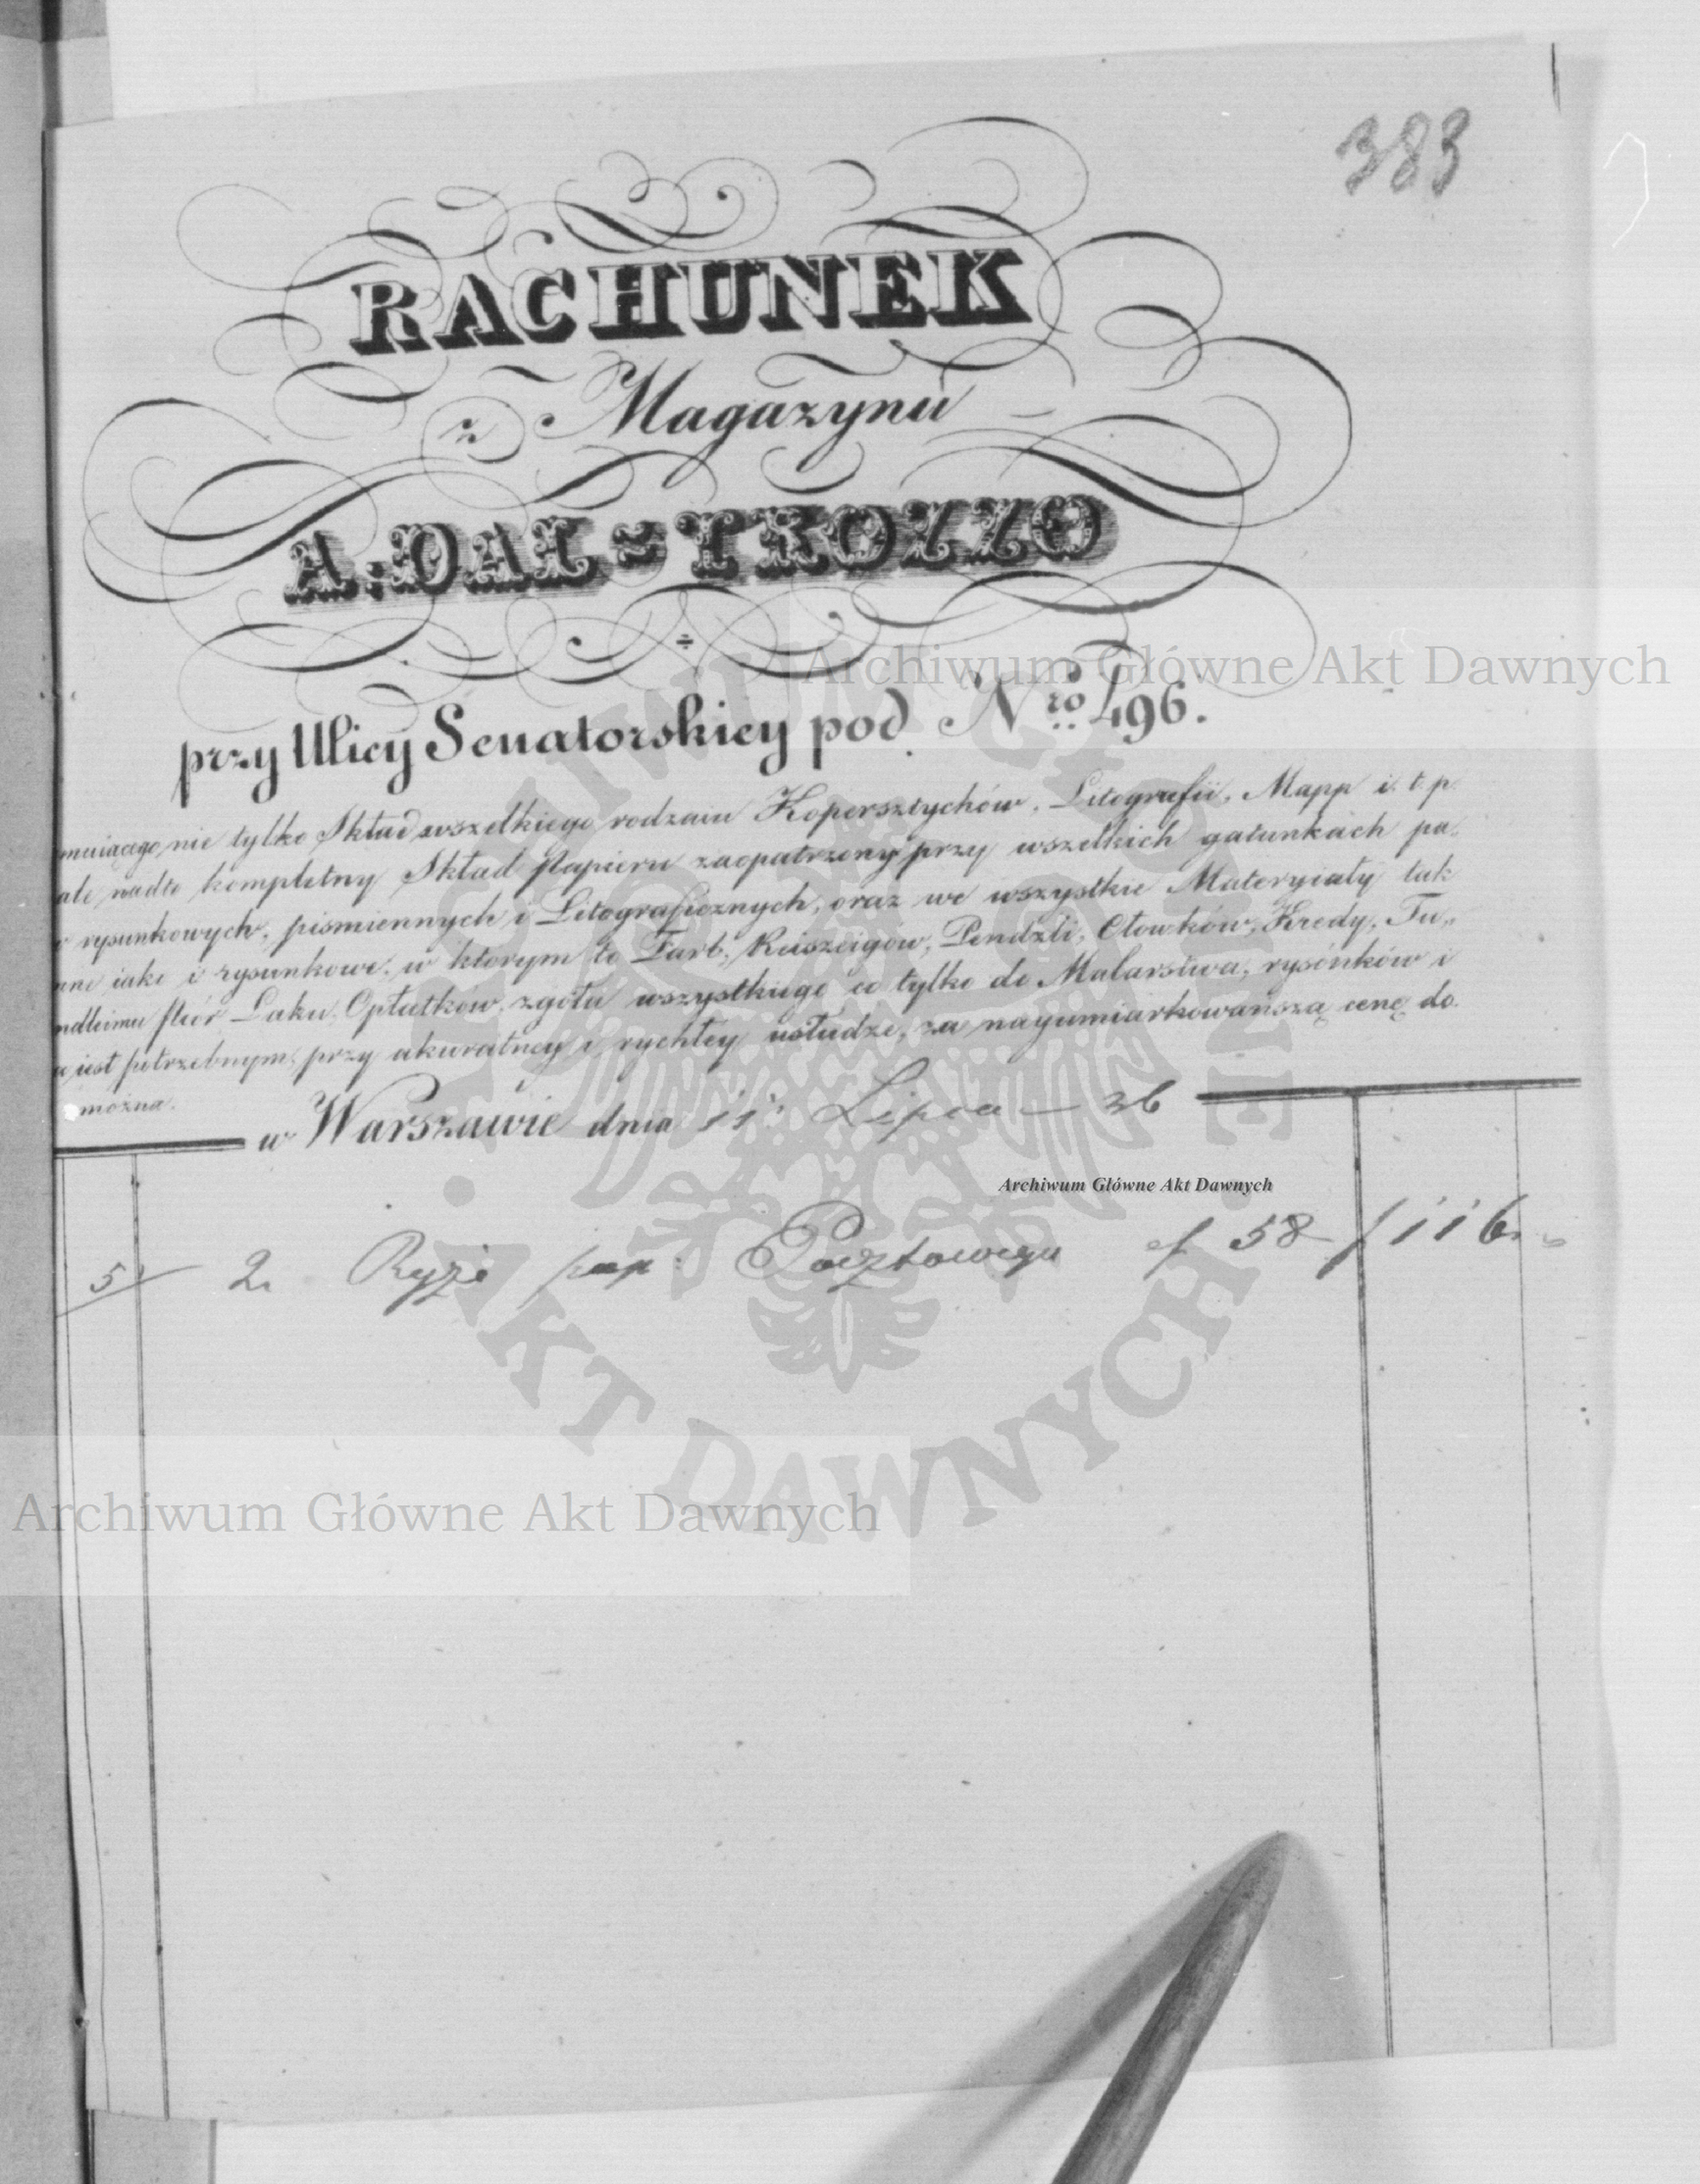 383
RACHUNEK
z Magazynu
A. DAL-TROZZO
przy Ulicy Senatorskiey pod Nro 496.
nie tylko Skład wszelkiego rodzaiu Kopersztychów, Litografii, Mapp i. t. p.
ale nadto kompletny Skład Papieru zaopatrzony przy wszelkich gatunkach pa„
rysunkowych, pismiennych i Litograficznych, oraz we wszystkie Materyiały tak
iako i rysunkowe, w ktorym to Farb, Reiszeigów, Pendzli, Ołowków, Kredy, Tu„
Piór Laku, Opłatków, zgoła wszystkiego co tylko do Malarstwa, rysónków i
iest potrzebnym, przy akuratney i rychłey usłudze, za nayumiarkowańszą cenę do
można.
w Warszawie dnia 11 Lipca — 36
Archiwum Główne Akt Dawnych
5 2 Ryze pap: Pocztowego af 58 f 116.
Archiwum Główne Akt Dawnych
Archiwum Główne Akt Dawnych
ARCHIWUM GŁÓWNE · AKT DAWNYCH ·